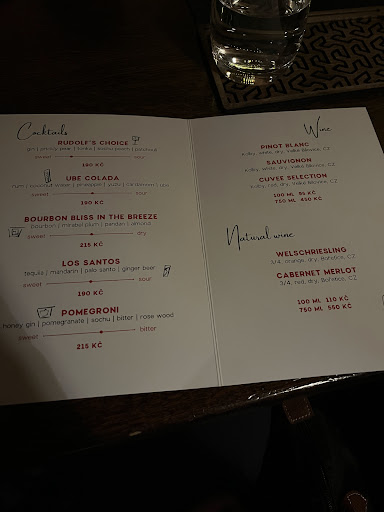 Cocktails
RUDOLF'S CHOICE
gin | prickly pear | tonka | sochu peach | patchouli
sweet sour
190 KČ
UBE COLADA
rum | coconut water | pineapple | yuzu | cardamom | ube
sweet sour
190 KČ
BOURBON BLISS IN THE BREEZE
bourbon | mirabel plum | pandan | almond
sweet dry
215 KČ
LOS SANTOS
tequila | mandarin | palo santo | ginger beer
sweet sour
190 KČ
POMEGRONI
honey gin | pomegranate | sochu | bitter | rose wood
sweet bitter
215 KČ
Wine
PINOT BLANC
Kolby, white, dry, Velké Bílovice, CZ
SAUVIGNON
Kolby, white, dry, Velké Bílovice, CZ
CUVEE SELECTION
Kolby, red, dry, Velké Bílovice, CZ
100 ML 85 KČ
750 ML 450 KČ
Natural wine
WELSCHRIESLING
3/4, orange, dry, Bořetice, CZ
CABERNET MERLOT
3/4, red, dry, Bořetice, CZ
100 ML 110 KČ
750 ML 550 KČ